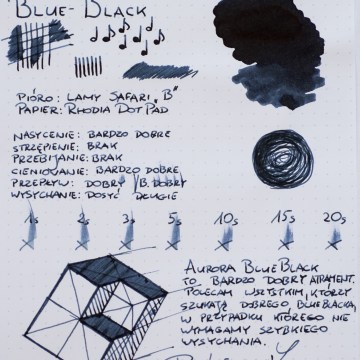 BLUE-BLACK
PIÓRO: LAMY SAFARI „B”
PAPIER: RHODIA DOT PAD
NASYCENIE: BARDZO DOBRE
STRZĘPIENIE: BRAK
PRZEBIJANIE: BRAK
CIENIOWANIE: BARDZO DOBRE
PRZEPŁYW: DOBRY / B. DOBRY
WYSYCHANIE: DOSYĆ DŁUGIE
1s 2s 3s 5s 10s 15s 20s
AURORA BLUE BLACK
TO BARDZO DOBRY ATRAMENT.
POLECAM WSZYSTKIM, KTÓRZY
SZUKAJĄ DOBREGO BLUE BLACKA,
W PRZYPADKU KTÓREGO NIE
WYMAGAMY SZYBKIEGO
WYSYCHANIA.